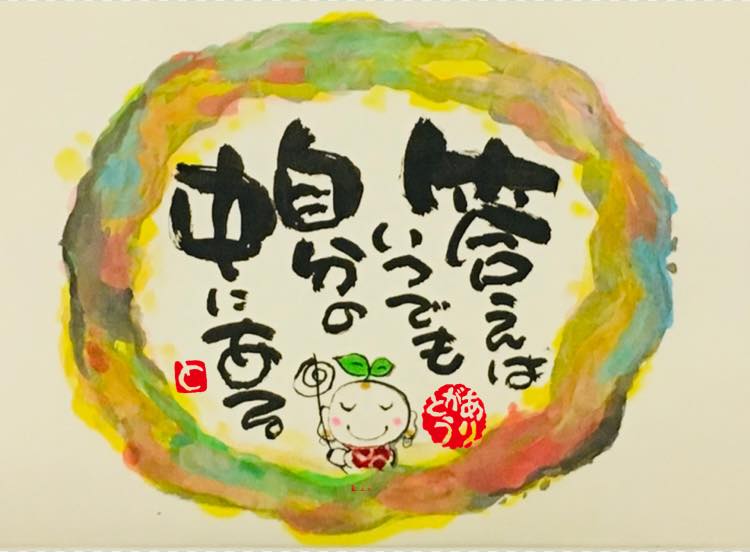 答えは
いつでも
自分の
中にある。
ありがとう
と